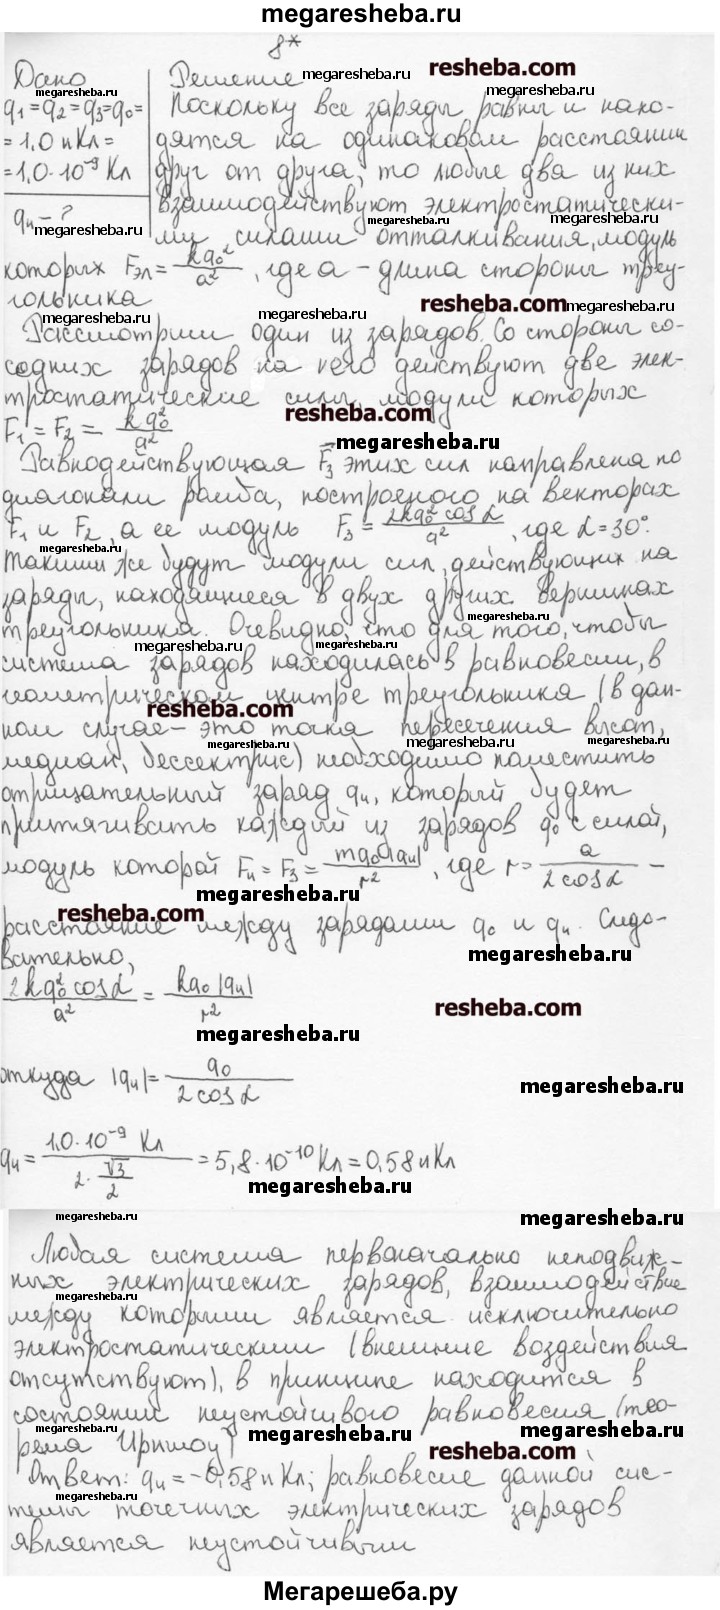 megaresheba.ru
8*
Дано
q₁=q₂=q₃=q₀=
=1,0 нКл=
=1,0·10⁻⁹ Кл
q₄-?
Решение
Поскольку все заряды равны и нахо-
дятся на одинаковом расстоянии
друг от друга, то любые два из них
взаимодействуют электростатически-
ми силами отталкивания, модуль
которых Fэл = kq₀²/a², где a - длина стороны треу-
гольника
Рассмотрим один из зарядов. Со стороны со-
седних зарядов на него действуют две элек-
тростатические силы, модули которых
F₁ = F₂ = kq₀²/a²
Равнодействующая F⃗₃ этих сил направлена по
диагонали ромба, построеного на векторах
F₁ и F₂, а ее модуль F₃ = 2kq₀² cos α/a², где α = 30°.
Такими же будут модули сил, действующих на
заряды, находящиеся в двух других вершинах
треугольника. Очевидно, что для того, чтобы
система зарядов находилась в равновесии, в
геометрическом центре треугольника (в дан-
ном случае - это точка пересечения высот,
медиан, бессектрис) необходимо поместить
отрицательный заряд q₄, который будет
притягивать каждый из зарядов q₀ с силой,
модуль которой F₄ = F₃ = mq₀|q₄|/r², где r = a/2cosα -
расстояние между зарядами q₀ и q₄. Следо-
вательно,
2kq₀² cos α/a² = kq₀|q₄|/r²
откуда |q₄| = q₀/2cosα
q₄ = 1,0·10⁻⁹ Кл/(2·√3/2) = 5,8·10⁻¹⁰ Кл = 0,58 нКл
Любая система первоначально неподвиж-
ных электрических зарядов, взаимодействие
между которыми является исключительно
электростатическим (внешние воздействия
отсутствуют), в принципе находится в
состоянии неустойчивого равновесия (тео-
рема Ирншоу)
Ответ: q₄ = -0,58 нКл; равновесие данной сис-
темы точечных электрических зарядов
является неустойчивым
Мегарешеба.ру